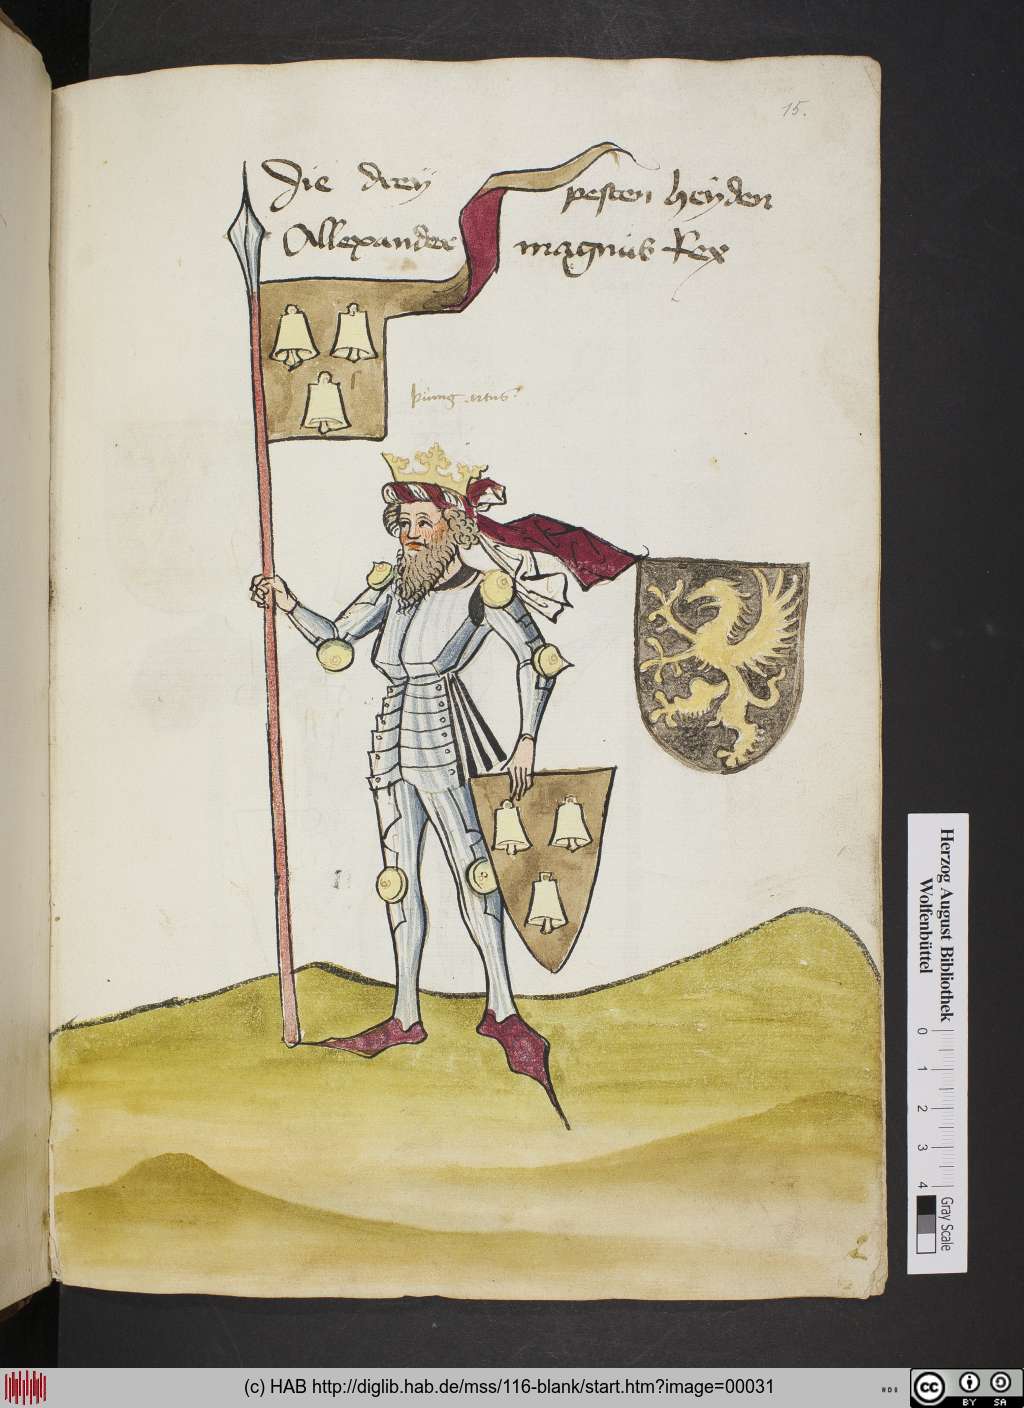 15.
Die drey pesten heyden
Allexander magnus Rex
Herzog August Bibliothek
Wolfenbüttel
0 1 2 3 4
Gray Scale
(c) HAB http://diglib.hab.de/mss/116-blank/start.htm?image=00031
cc BY SA